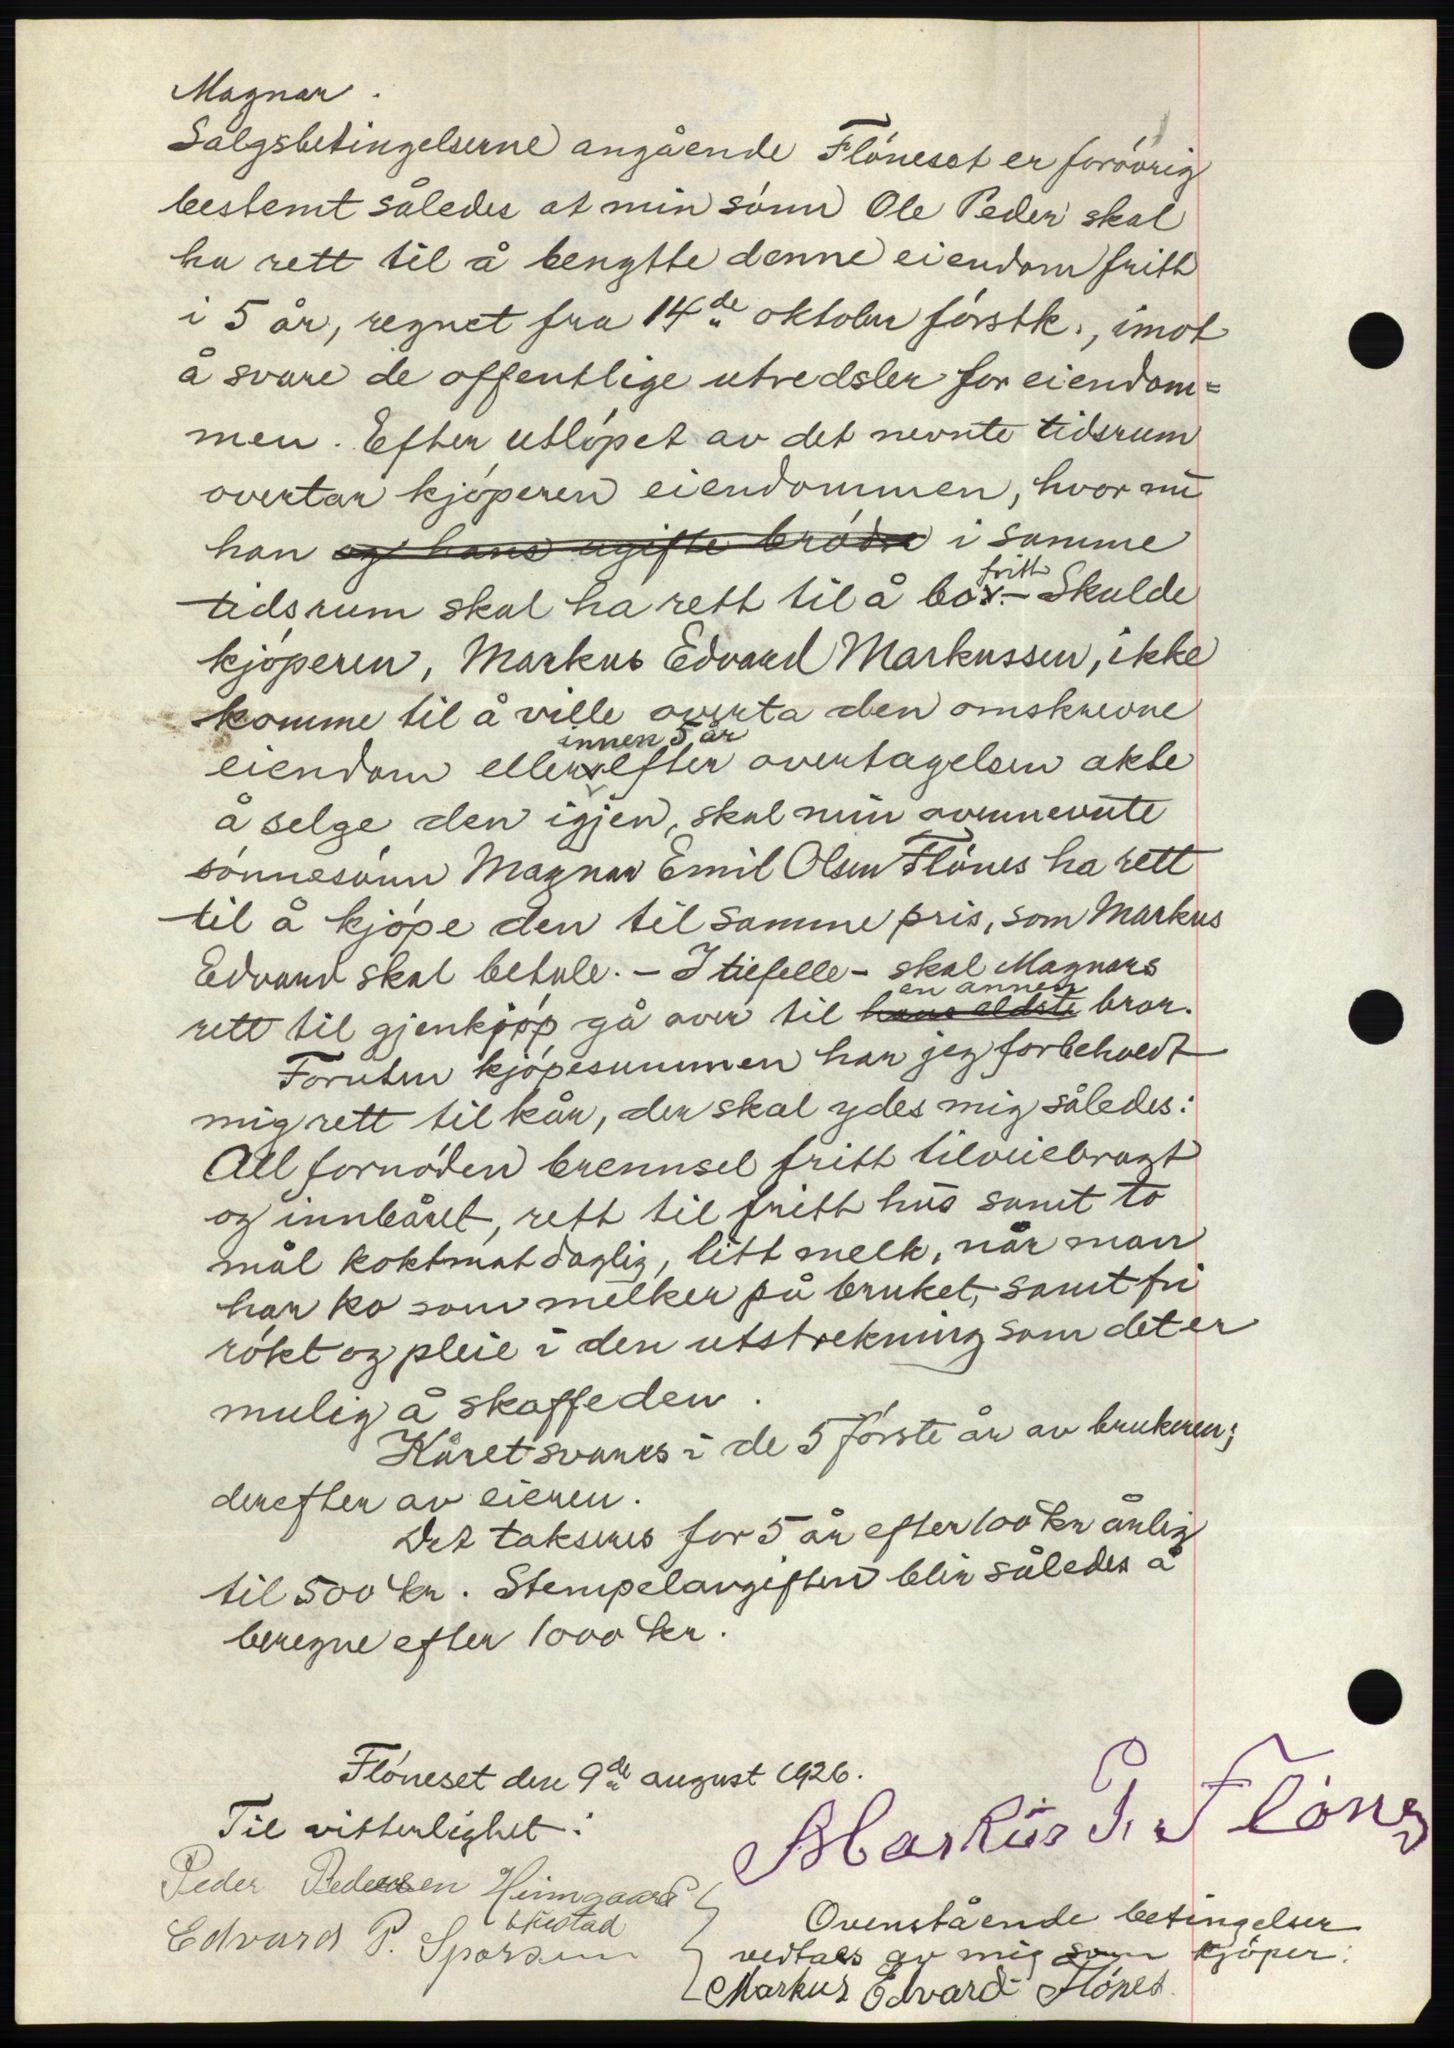 Magnar.
Salgsbetingelserne angående Flóneset er forövrig
bestemt således at min sónn Ole Peder skal
ha rett til å benytte denne eiendom fritt
i 5 år, regnet fra 14de oktober fórstk., imot
å svare de offentlige utredsler for eiendom=
men. Efter utlópet av det nevnte tidsrum
overtar kjóperen eiendommen, hvor nu
han og hans ugifte bródre i samme
tidsrum skal ha rett til å bo fritt. – Skulde
kjóperen, Markus Edvard Markussen, ikke
komme til å ville overta den omskrevne
eiendom eller innen 5 år efter overtagelsen akte
å selge den igjen, skal min ovennevnte
sónnesónn Magnar Emil Olsen Flónes ha rett
til å kjópe den til samme pris, som Markus
Edvard skal betale. – I tilfelle – skal Magnars
rett til gjenkjóp gå over til hans eldste en annen bror.
Foruten kjópesummen har jeg forbeholdt
mig rett til kår, der skal ydes mig således:
All fornóden brennsel fritt tilveiebragt
og innbåret, rett til fritt hus samt to
mål koktmat daglig, litt melk, når man
har ko som melker på bruket, samt fri
rókt og pleie i den utstrekning som det er
mulig å skaffe den.
Kåret svares i de 5 fórste år av brukeren;
derefter av eieren.
Det takseres for 5 år efter 100 kr årlig
til 500 kr. Stempelavgiften blir således å
beregne efter 1000 kr.
Flóneset den 9de august 1926.
Til vitterlighet:
Markus P. Flónes
Peder Pedersen Heimgaard
Edvard P.
Ovenstående betingelser
vedtaes av mig som kjöper:
Markus Edvard Flónes.